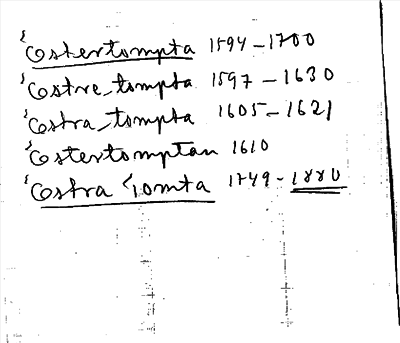 Östertompta 1594-1700
Östre tompta 1597-1630
Östra tompta 1605-1621
Östertomptan 1610
Östra Tomta 1749-1880